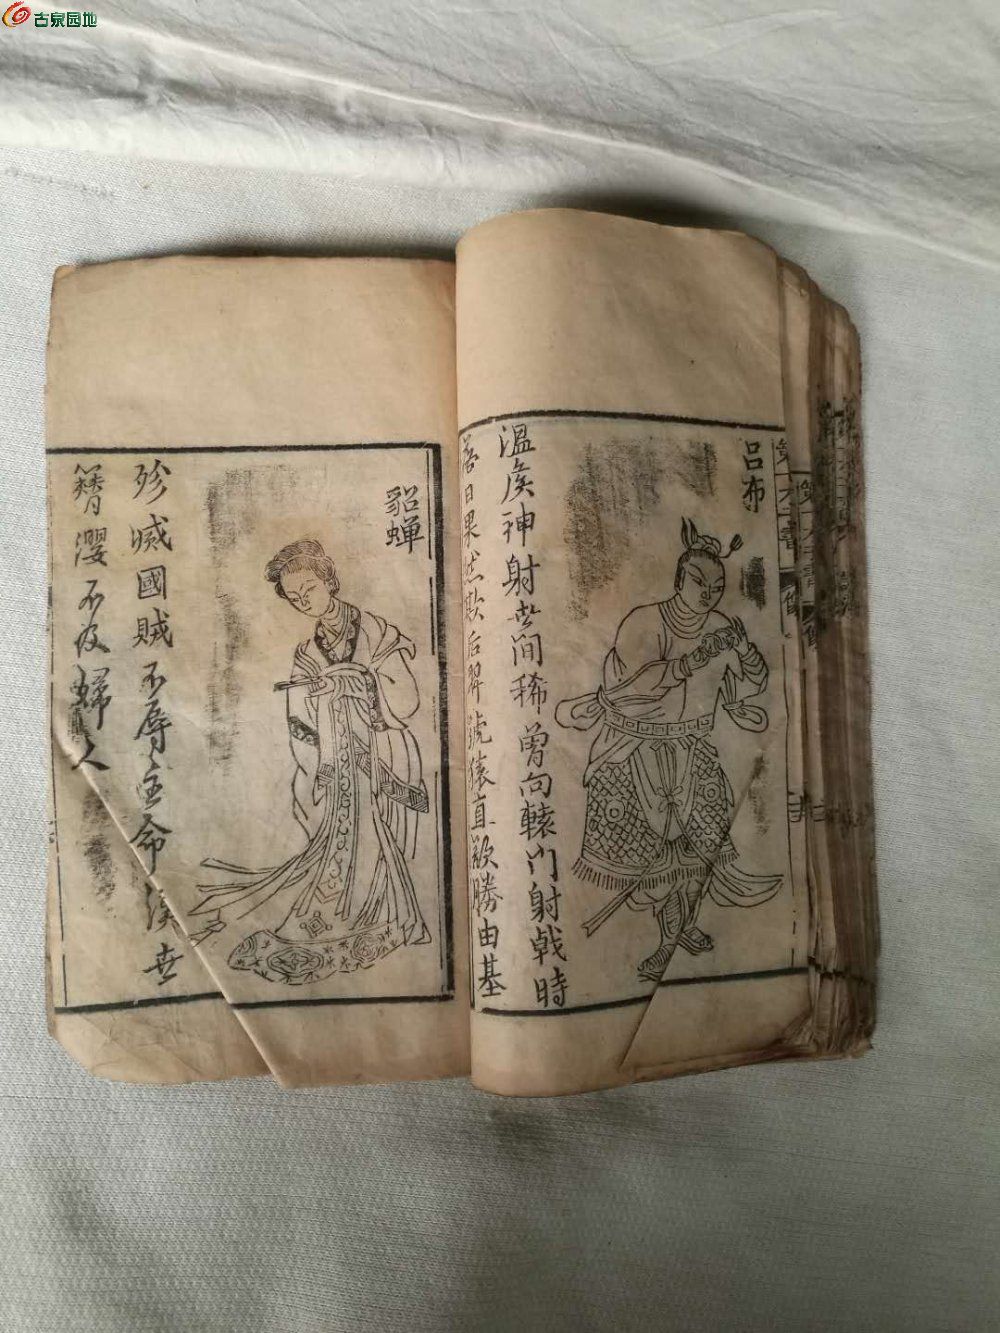 古泉园地
第一才子書
吕布
溫侯神射世间稀曾向轅门射戟時
落日果然欺后羿號猿直欲勝由基
貂蝉
殄滅國賊不辱主命漢世
簪纓不及婦人